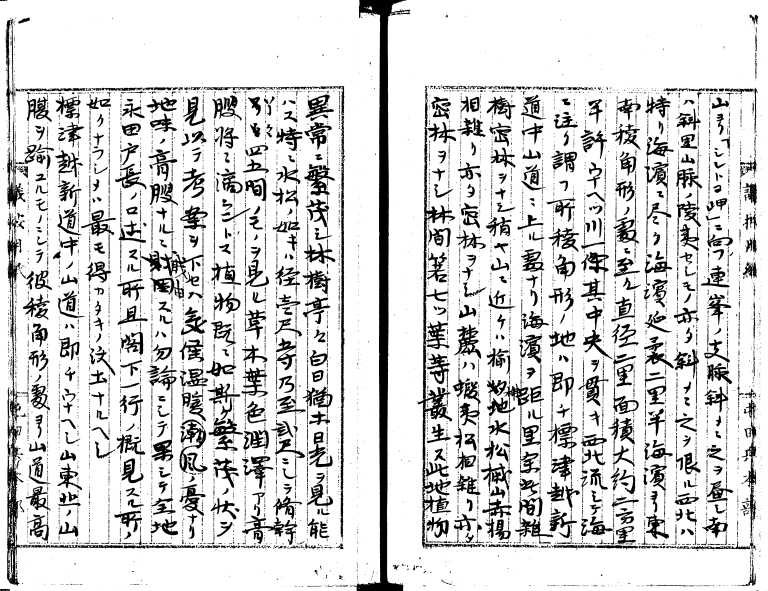 山ヨリシレトコ岬ニ向フ連峯ノ支脈斜メニ之ヲ畳ミ南
ハ斜里山脈陵夷セシモノ亦タ斜メニ之ヲ限ル西北ハ
特リ海濱ニ尽ク海濱延袤二里半海濱ヨリ東
南稜角形ノ処ニ至ル直径二里面積大約二方里
半許ウナベツ川一條其中央ヲ貫キ西北流シテ海
ニ注ク謂フ所稜角形ノ地ハ即チ標津越新
道中山道ニ上ル処ナリ海濱ヲ距ル里余此間雑
樹密林ヲナシ稍ヤ山ニ近ケハ椴地水松槭山赤楊
相雑リ亦タ密林ヲナシ山麓ハ蝦夷松相雑リ亦タ
密林ヲナシ林間笹七ツ葉等叢生ス此地植物
異常ニ繁茂シ林樹亭々白日猶ホ日光ヲ見ル能
ハス特ニ水松ノ如キハ径壱尺五寸乃至弐尺ニシテ脩幹
四五間ノモノヲ見ル草木葉色潤澤アリ膏
腴将ニ滴ラントス植物既ニ如斯ク繁茂ノ状ヲ
見以テ考案ヲ下セハ気候温暖潮風ノ憂ナリ
地味ノ膏腴ナルニ原因スルハ勿論ニシテ果シテ全地
永田戸長ノ口述スル所且閣下一行ノ概見スル所ノ
如クナラシメハ最モ得カタキノ沃土ナルヘシ
標津越新道中ノ山道ハ即チウナベシ山東北ノ山
腹ヲ踰ユルモノニシテ彼稜角形ノ処ヨリ山道最高